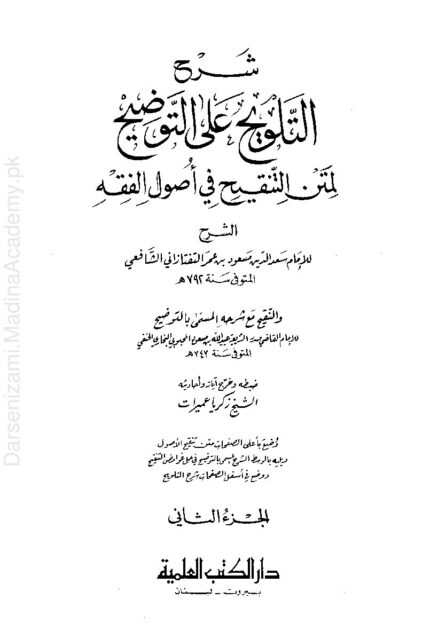 شرح
التلويح على التوضيح
لمتن التنقيح في أصول الفقه
الشرح
للإمام سعد الدين مسعود بن عمر التفتازاني الشافعي
المتوفى سنة ٧٩٢هـ
والتنقيح مع شرحه المسمى بالتوضيح
للإمام القاضي صدر الشريعة عبيد الله بن مسعود المحبوبي البخاري الحنفي
المتوفى سنة ٧٤٧هـ
ضبطه وخرج آياته وأحاديثه
الشيخ زكريا عميرات
وضع بأعلى الصفحات متن تنقيح الأصول
ويليه بالوسط الشرح المسمى بالتوضيح في حل غوامض التنقيح
ووضع في أسفل الصفحات شرح التلويح
الجزء الثاني
دار الكتب العلمية
بيروت - لبنان
Darsenizami.MadinaAcademy.pk